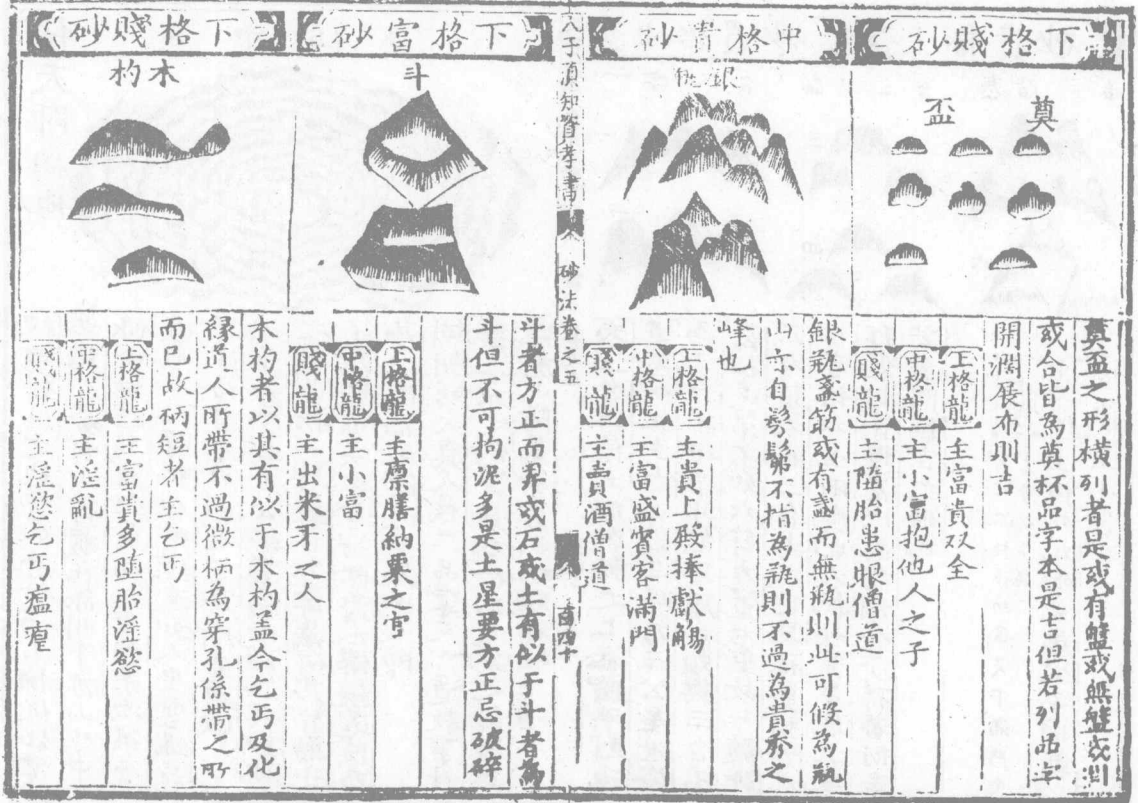 下格賤砂
奠
盃
奠盃之形橫列者是或有盤或無盤或
或合皆為奠杯品字本是吉但若列品字
開濶展布則吉
上格龍 主富貴双全
中格龍 主小富抱他人之子
賤龍 主隨胎患眼僧道
中格貴砂
銀瓶
銀瓶盞筯或有盞而無瓶則山可假為瓶
山亦自髣髴不指為瓶則不過為貴秀之
峰也
上格龍 主貴上殿捧獻觴
中格龍 主富盛賓客滿門
賤龍 主賣酒僧道
人子須知資孝書
砂法
卷之五
下格富砂
斗
斗者方正而昇或石或土有似于斗者為
斗但不可拘泥多是土星要方正忌破碎
上格龍 主廩膳納粟之官
中格龍 主小富
賤龍 主出米牙之人
下格賤砂
木杓
木杓者以其有似于木杓盖今乞丐及化
緣道人所帶不過微柄為穿孔絛帶之所
而已故柄短者主乞丐
上格龍 主富貴多墮胎淫慾
中格龍 主淫亂
賤龍 主淫慾乞丐瘟𤵜